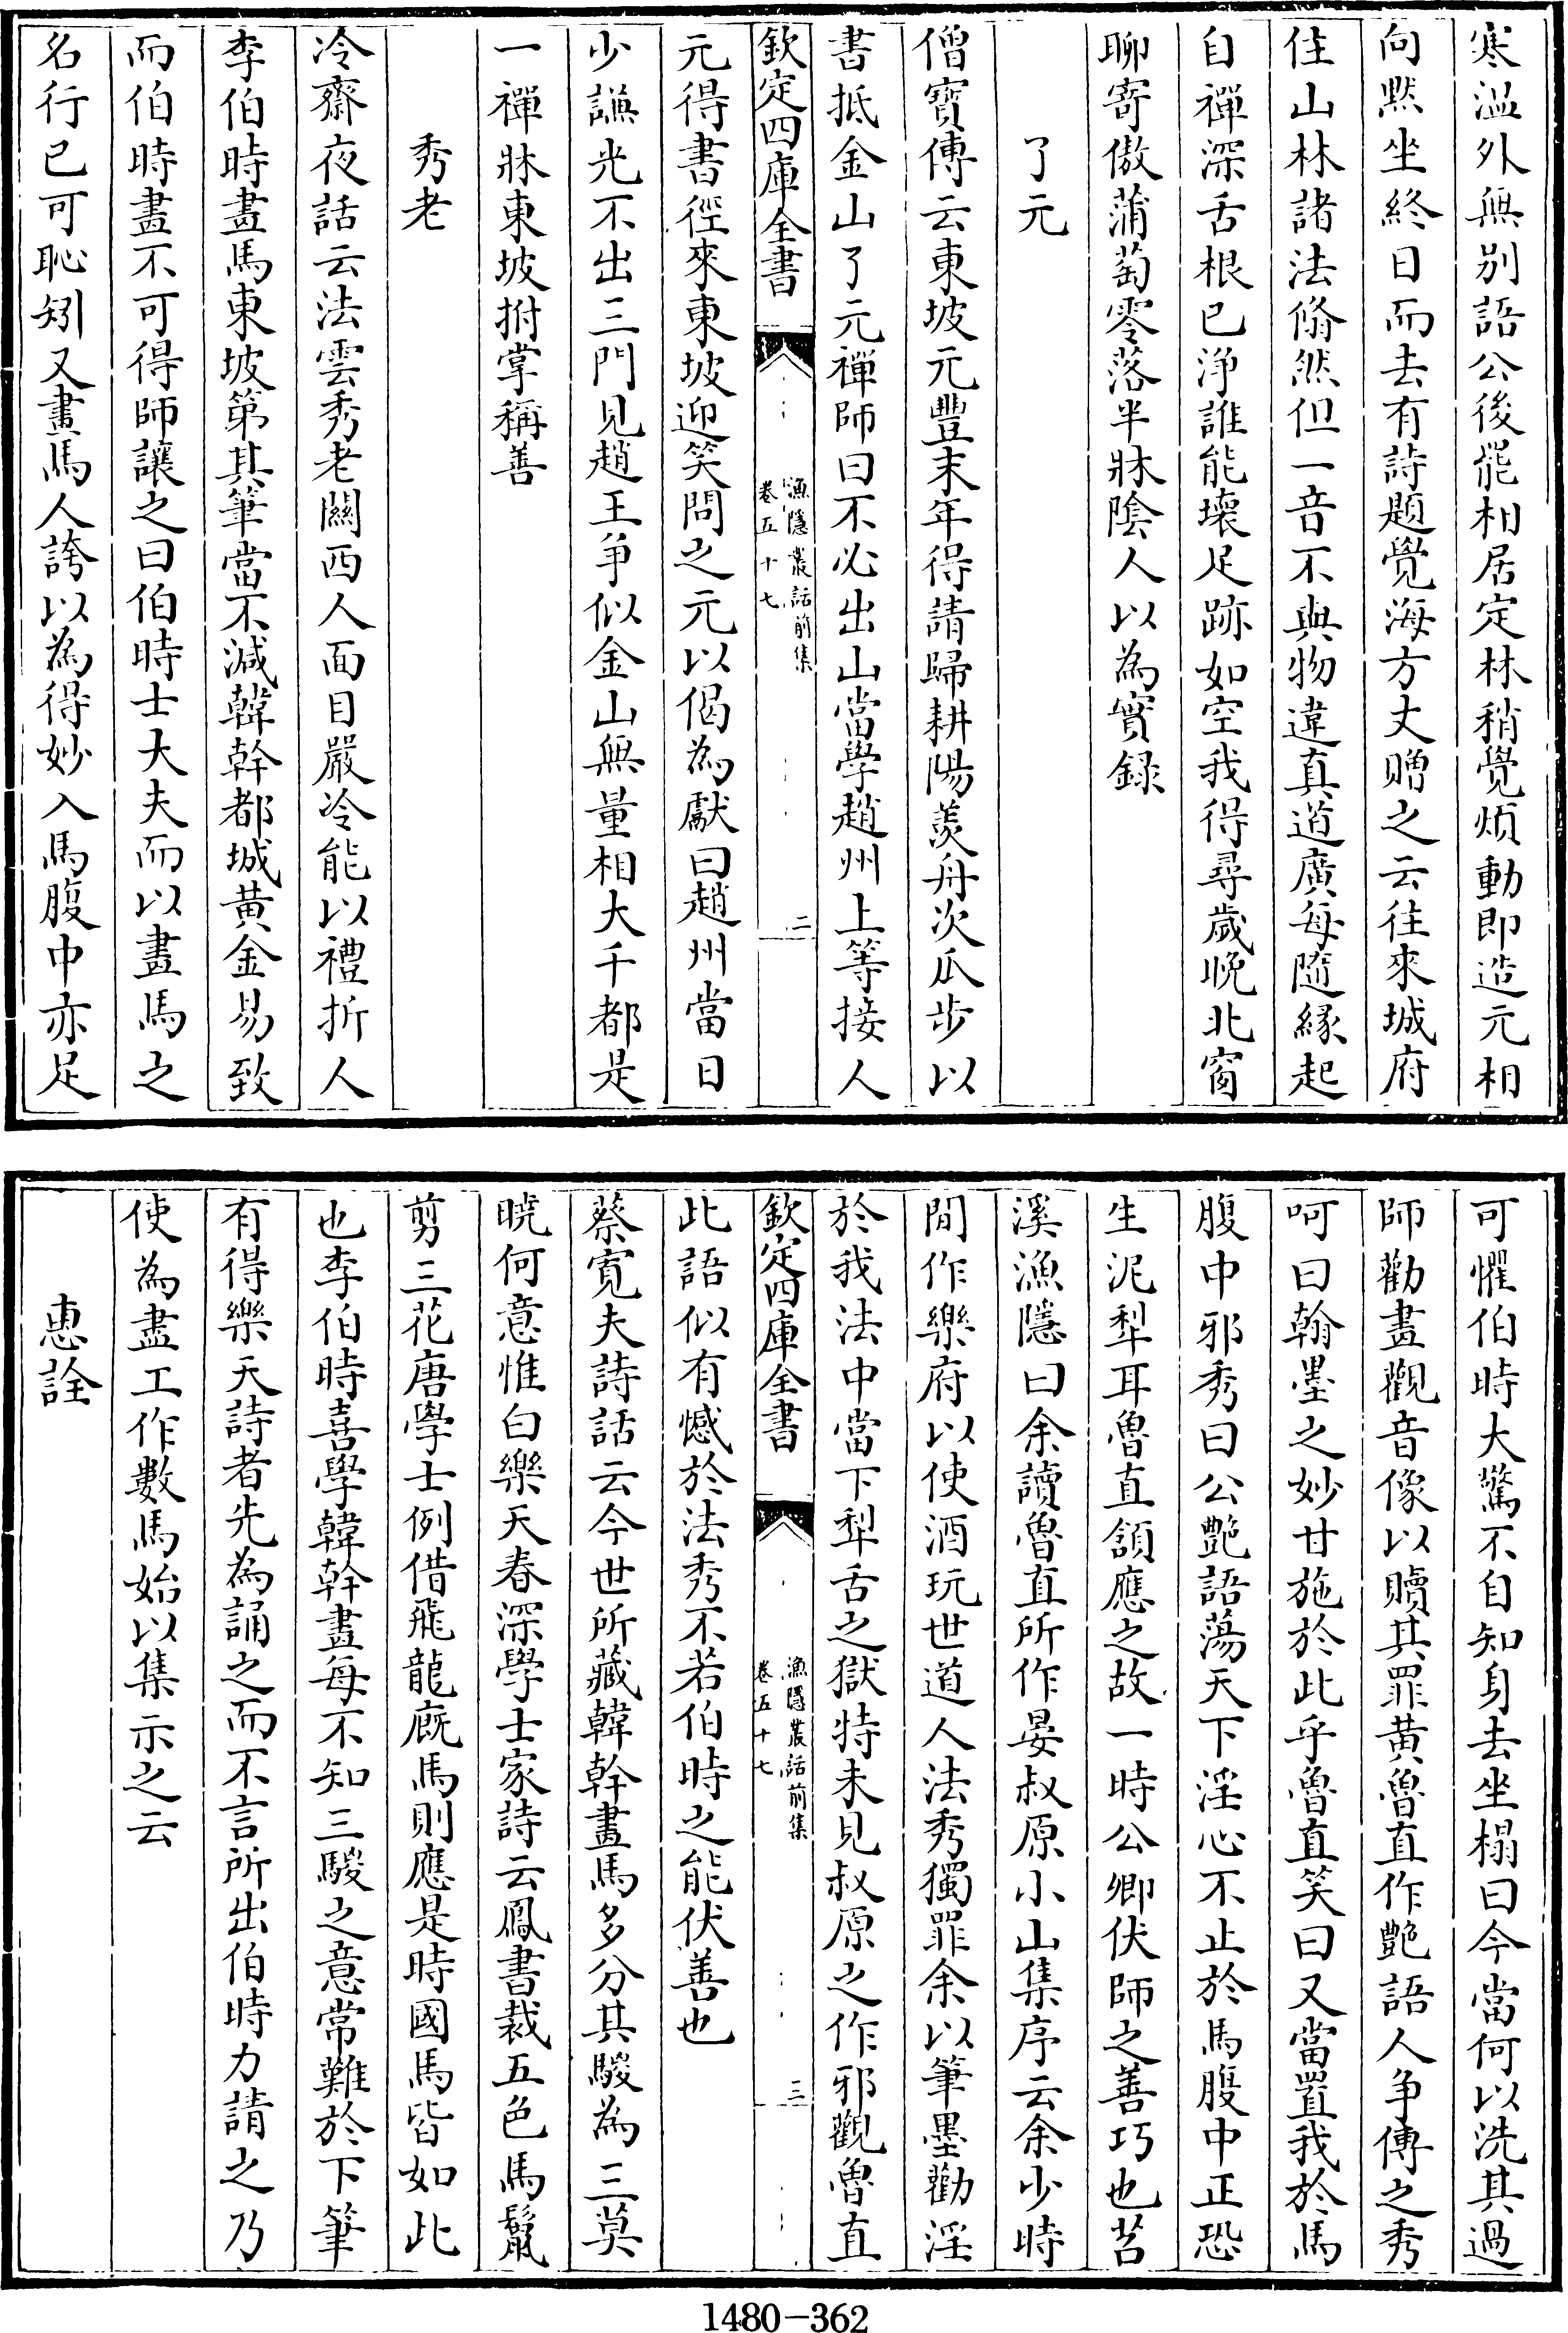 寒溫外無别語公後罷相居定林稍覺煩動即造元相
向默坐終日而去有詩題覺海方丈贈之云往來城府
住山林諸法翛然但一音不與物違真道廣每隨緣起
自禪深舌根已淨誰能壞足跡如空我得尋歲晚北窗
聊寄傲蒲萄零落半牀陰人以為實録
了元
僧寶傳云東坡元豐末年得請歸耕陽羨舟次瓜步以
書抵金山了元禪師曰不必出山當學趙州上等接人
欽定四庫全書
漁隱叢話前集
卷五十七
二
元得書徑來東坡迎笑問之元以偈為獻曰趙州當日
少謙光不出三門見趙王争似金山無量相大千都是
一禪牀東坡拊掌稱善
秀老
冷齋夜話云法雲秀老關西人面目嚴冷能以禮折人
李伯時畫馬東坡第其筆當不減韓幹都城黄金易致
而伯時畫不可得師讓之曰伯時士大夫而以畫馬之
名行已可恥矧又畫馬人誇以為得妙入馬腹中亦足
可懼伯時大驚不自知身去坐榻曰今當何以洗其過
師勸畫觀音像以贖其罪黄魯直作艶語人争傳之秀
呵曰翰墨之妙甘施於此乎魯直笑曰又當置我於馬
腹中邪秀曰公艶語蕩天下淫心不止於馬腹中正恐
生泥犁耳魯直頷應之故一時公卿伏師之善巧也苕
溪漁隱曰余讀魯直所作晏叔原小山集序云余少時
間作樂府以使酒玩世道人法秀獨罪余以筆墨勸淫
於我法中當下犁舌之獄特未見叔原之作邪觀魯直
欽定四庫全書
漁隱叢話前集
卷五十七
三
此語似有憾於法秀不若伯時之能伏善也
蔡寛夫詩話云今世所藏韓幹畫馬多分其騣為三莫
曉何意惟白樂天春深學士家詩云鳳書裁五色馬鬛
剪三花唐學士例借飛龍厩馬則應是時國馬皆如此
也李伯時喜學韓幹畫每不知三騣之意常難於下筆
有得樂天詩者先為誦之而不言所出伯時力請之乃
使為盡工作數馬始以集示之云
惠詮
1480-362